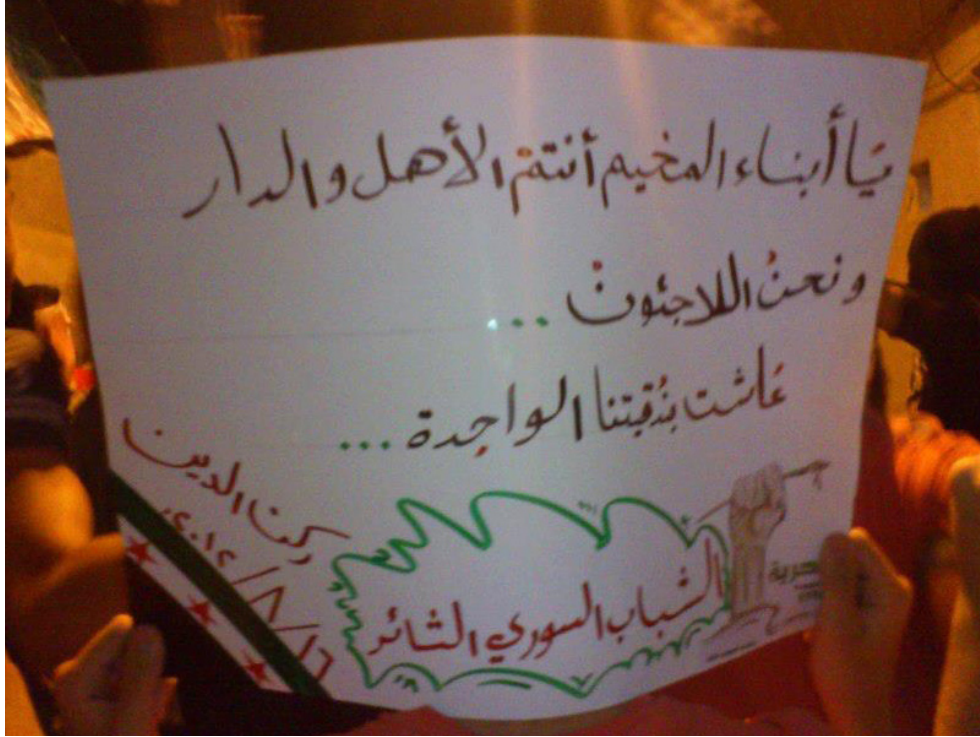 يَا أبناء المخيم أنتمْ الأهل والدار
ونحنُ اللاجئونْ ...
عَاشت بُندقيتنا الواحِدة ...
ركن الدين
٢٠١٢/٨/٦
الشباب السوري الثائر